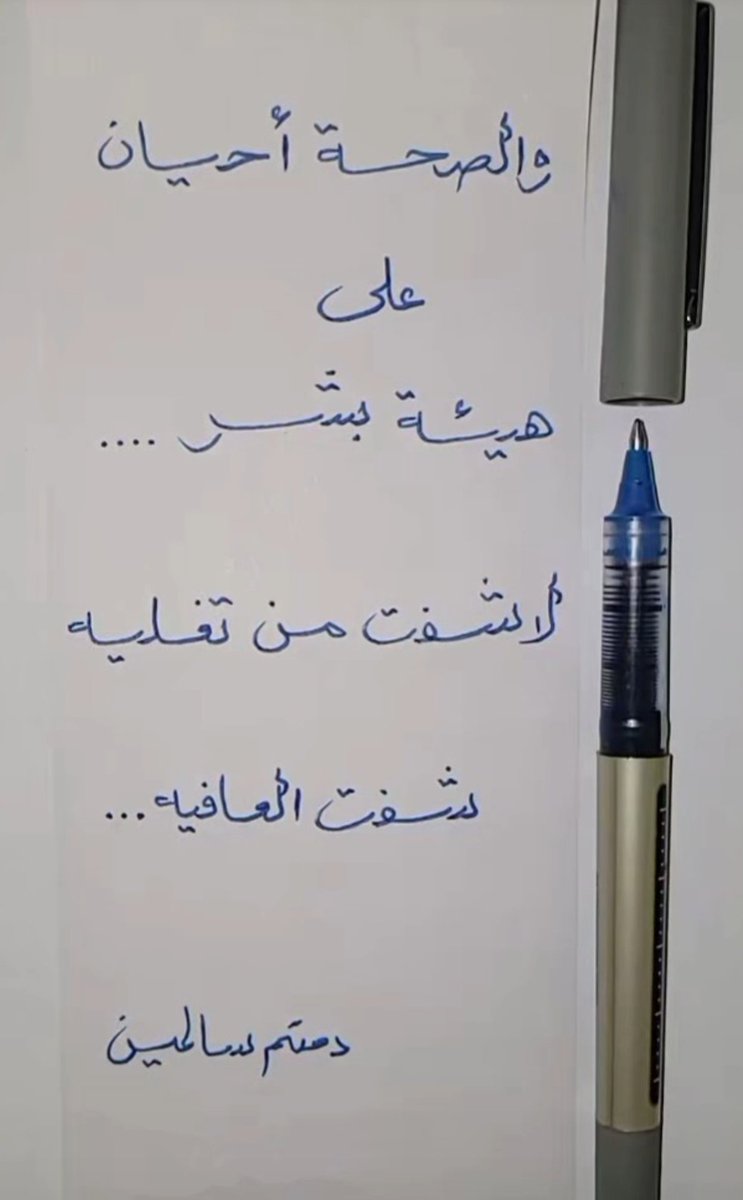 والصحة أحيان
على
هيئة بشر ....
لا شفت من تغليه
شفت العافيه...
دمتم سالمين